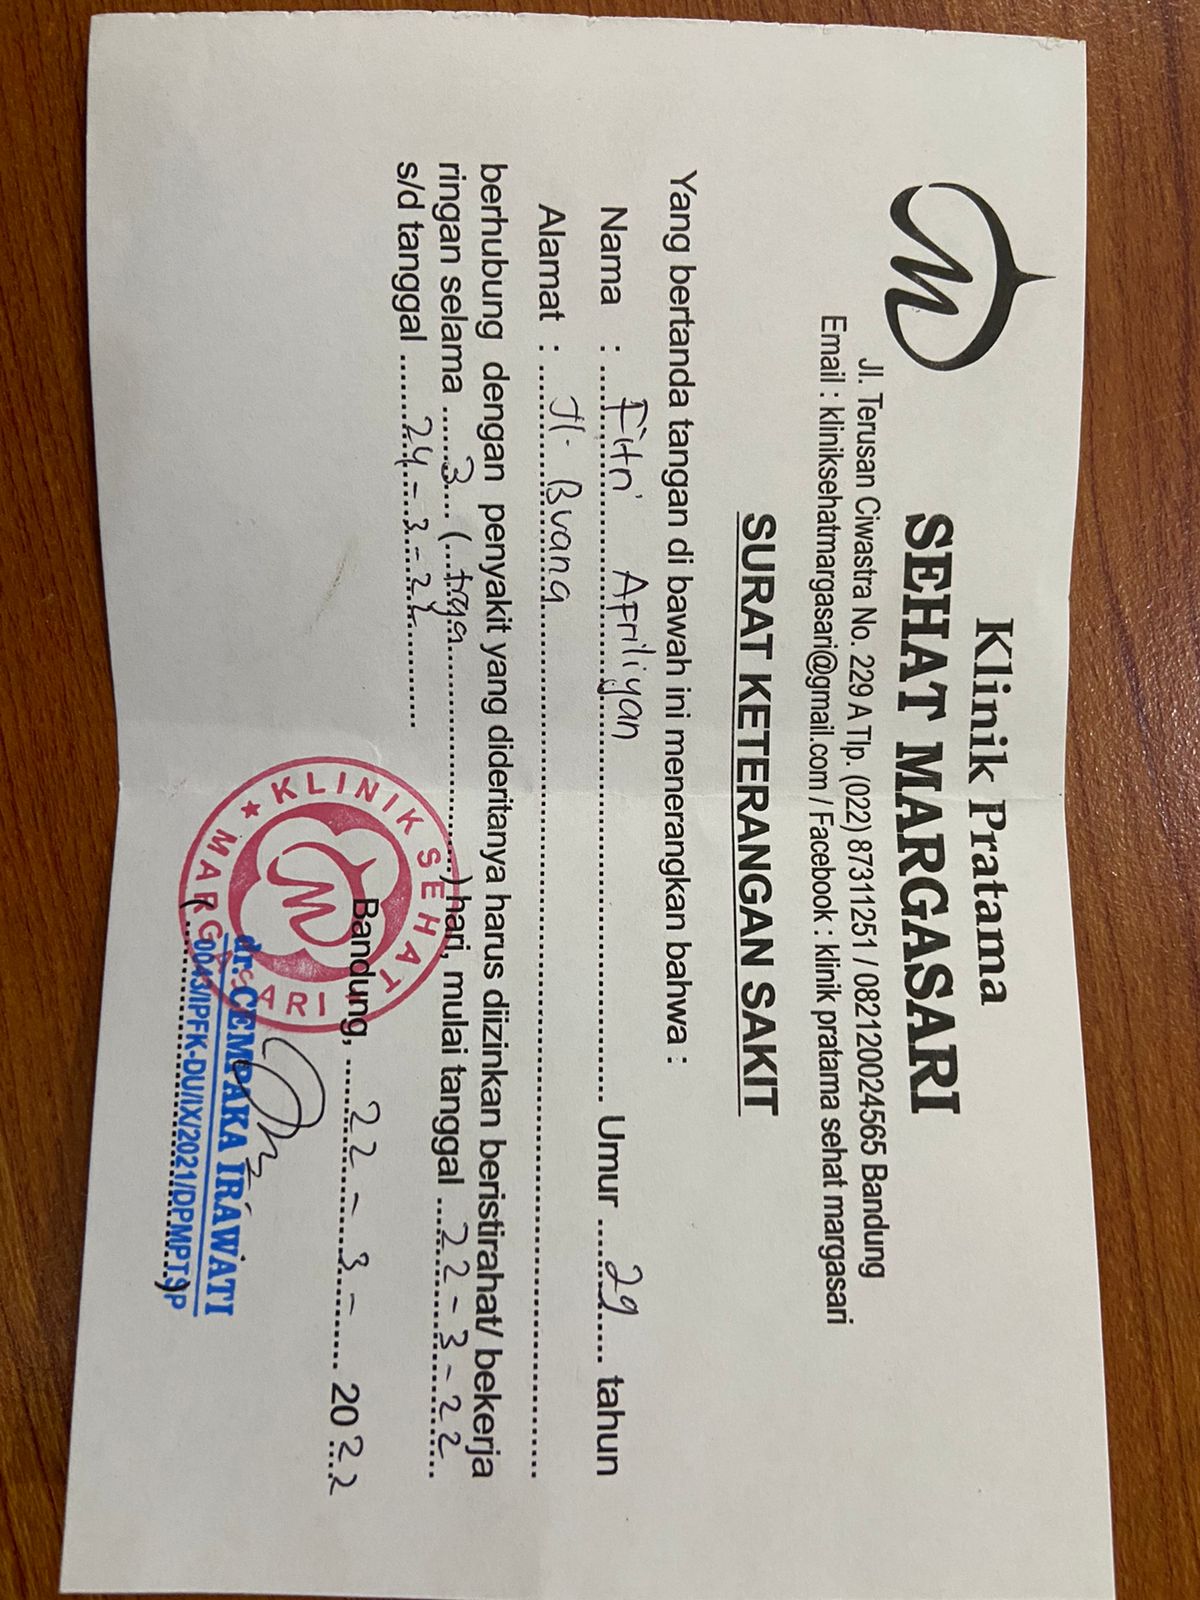 Klinik Pratama
SEHAT MARGASARI
Jl. Terusan Ciwastra No. 229 A Tlp. (022) 87311251 / 082120024565 Bandung
Email : kliniksehatmargasari@gmail.com / Facebook : klinik pratama sehat margasari
SURAT KETERANGAN SAKIT
Yang bertanda tangan di bawah ini menerangkan bahwa :
Nama : Fitri Apriliyan Umur 29 tahun
Alamat : Jl. Buana
berhubung dengan penyakit yang dideritanya harus diizinkan beristirahat/ bekerja
ringan selama 3 ( tiga ) hari, mulai tanggal 22 - 3 - 22
s/d tanggal 24 - 3 - 22
Bandung, 22 - 3 - 2022
KLINIK SEHAT
MARGASARI
dr. CEMPAKA IRAWATI
0043/IPFK-DU/IX/2021/DPMPTSP